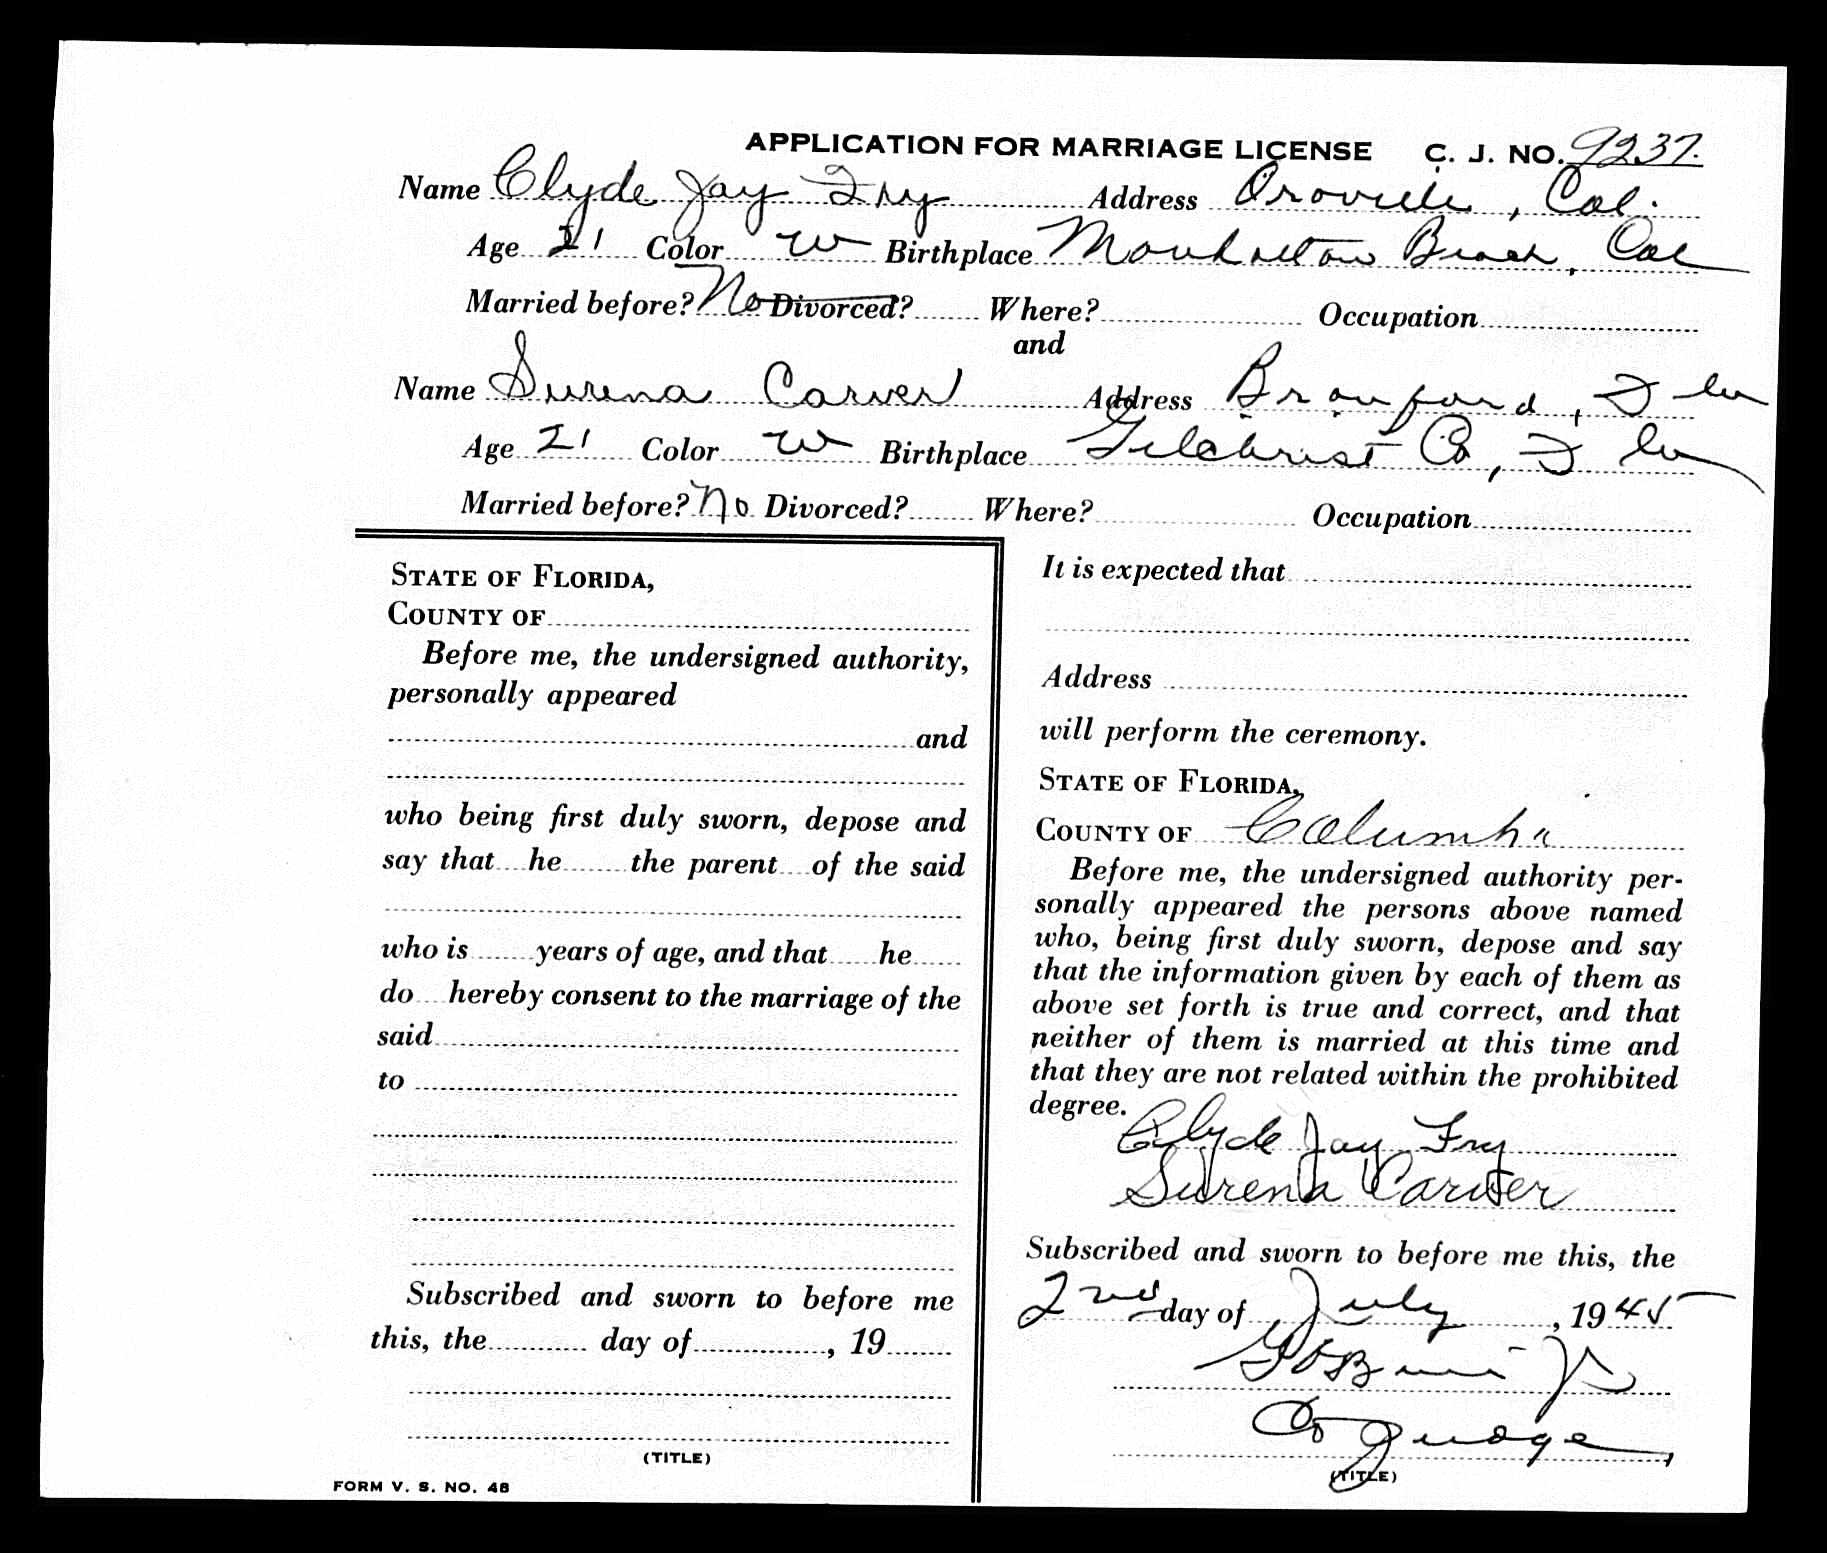 APPLICATION FOR MARRIAGE LICENSE C. J. NO. 9237.
Name Clyde Jay Fry Address Oroville, Cal.
Age 21 Color W Birthplace Manhattan Beach, Cal
Married before? No Divorced? Where? Occupation
and
Name Surena Carver Address Branford, Fla
Age 21 Color W Birthplace Gilchrist Co, Fla
Married before? No Divorced? Where? Occupation
STATE OF FLORIDA,
COUNTY OF
Before me, the undersigned authority,
personally appeared
and
who being first duly sworn, depose and
say that he the parent of the said
who is years of age, and that he
do hereby consent to the marriage of the
said
to
Subscribed and sworn to before me
this, the day of , 19
(TITLE)
FORM V. S. NO. 48
It is expected that
Address
will perform the ceremony.
STATE OF FLORIDA,
COUNTY OF Columbia
Before me, the undersigned authority per-
sonally appeared the persons above named
who, being first duly sworn, depose and say
that the information given by each of them as
above set forth is true and correct, and that
neither of them is married at this time and
that they are not related within the prohibited
degree.
Clyde Jay Fry
Surena Carver
Subscribed and sworn to before me this, the
2nd day of July , 1945
Jr
Co Judge
(TITLE)